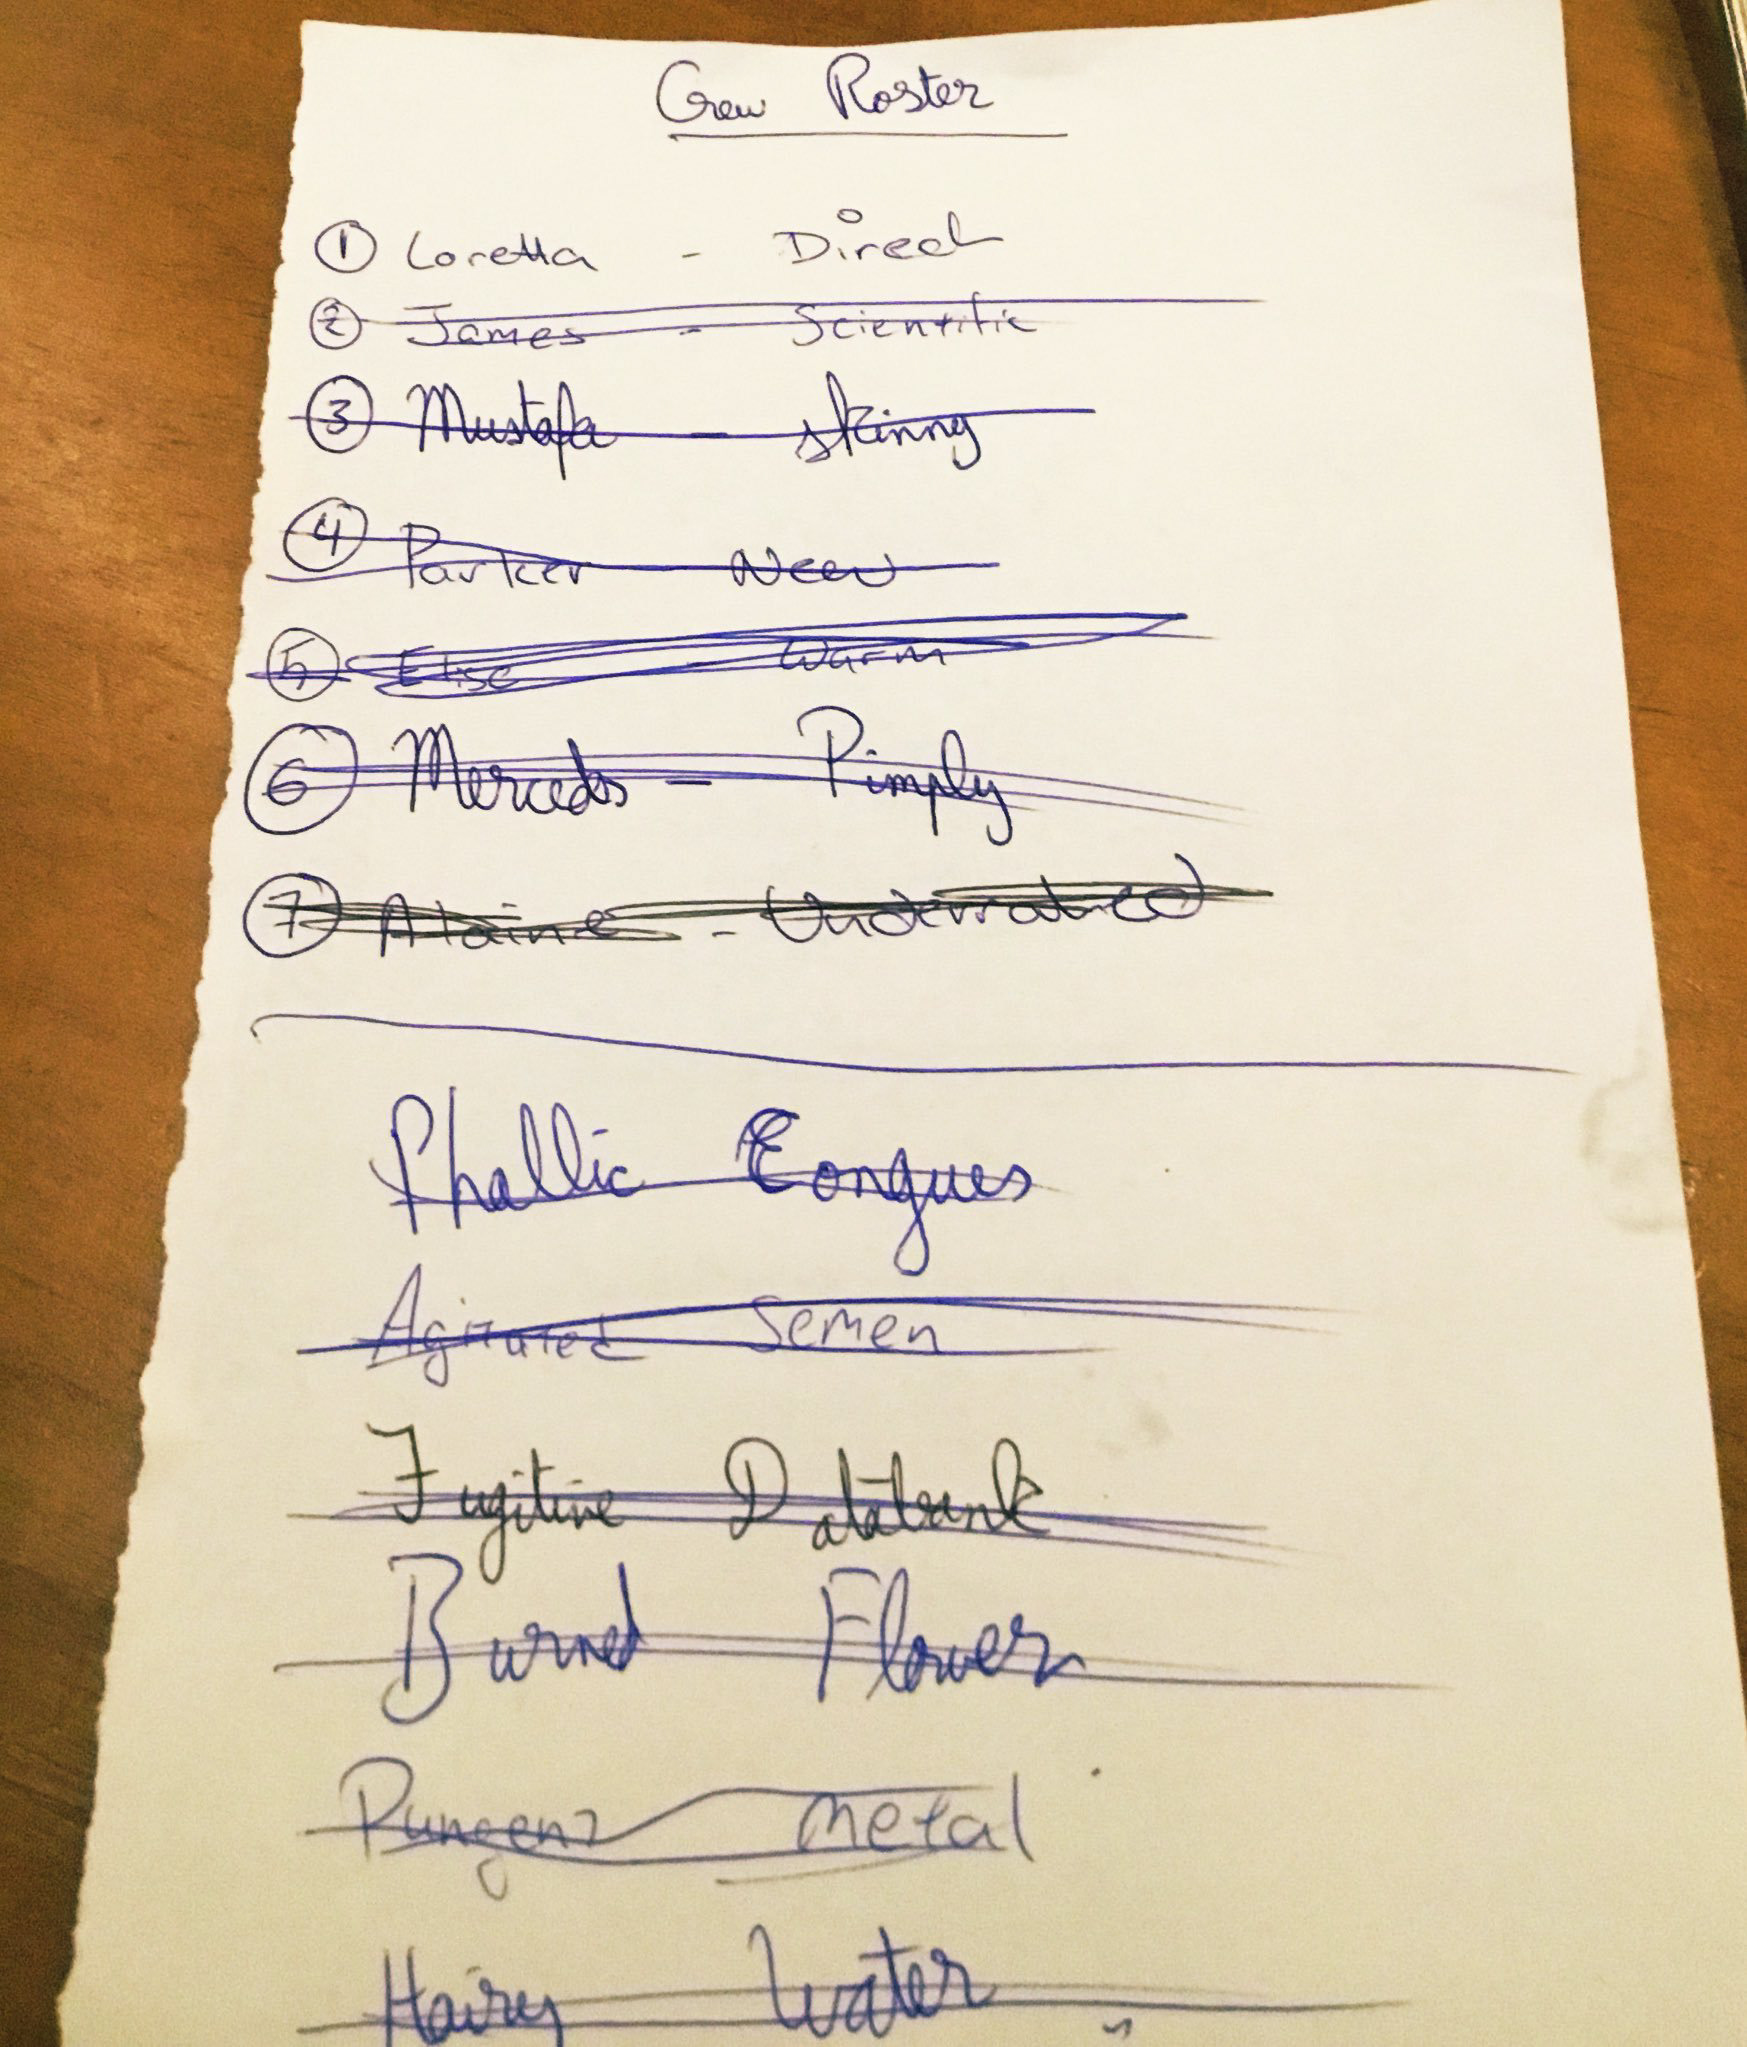 Crew Roster
① Loretta - Direct
② James - Scientific
③ Mustafa - skinny
④ Parker New
⑤ Else - Warm
⑥ Merceds - Pimply
⑦ Alaine - Underrated
Phallic Congues
Agitated Semen
Fugitive Databank
Burned Flower
Pungent Metal
Hairy Water